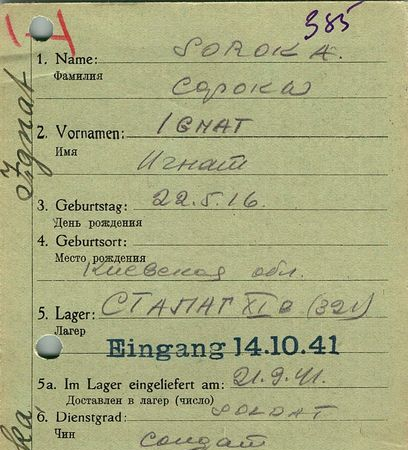 385
1. Name: SOROKA.
Фамилия
Сорока
2. Vornamen: IGNAT
Имя
Игнат
3. Geburtstag: 22.5.16.
День рождения
4. Geburtsort:
Место рождения
Киевская обл.
5. Lager: СТАЛАГ XI D (321)
Лагер
Eingang 14.10.41
5a. Im Lager eingeliefert am: 21.9.41.
Доставлен в лагер (число)
6. Dienstgrad: SOLDAT
Чин
солдат
Ignat
ka